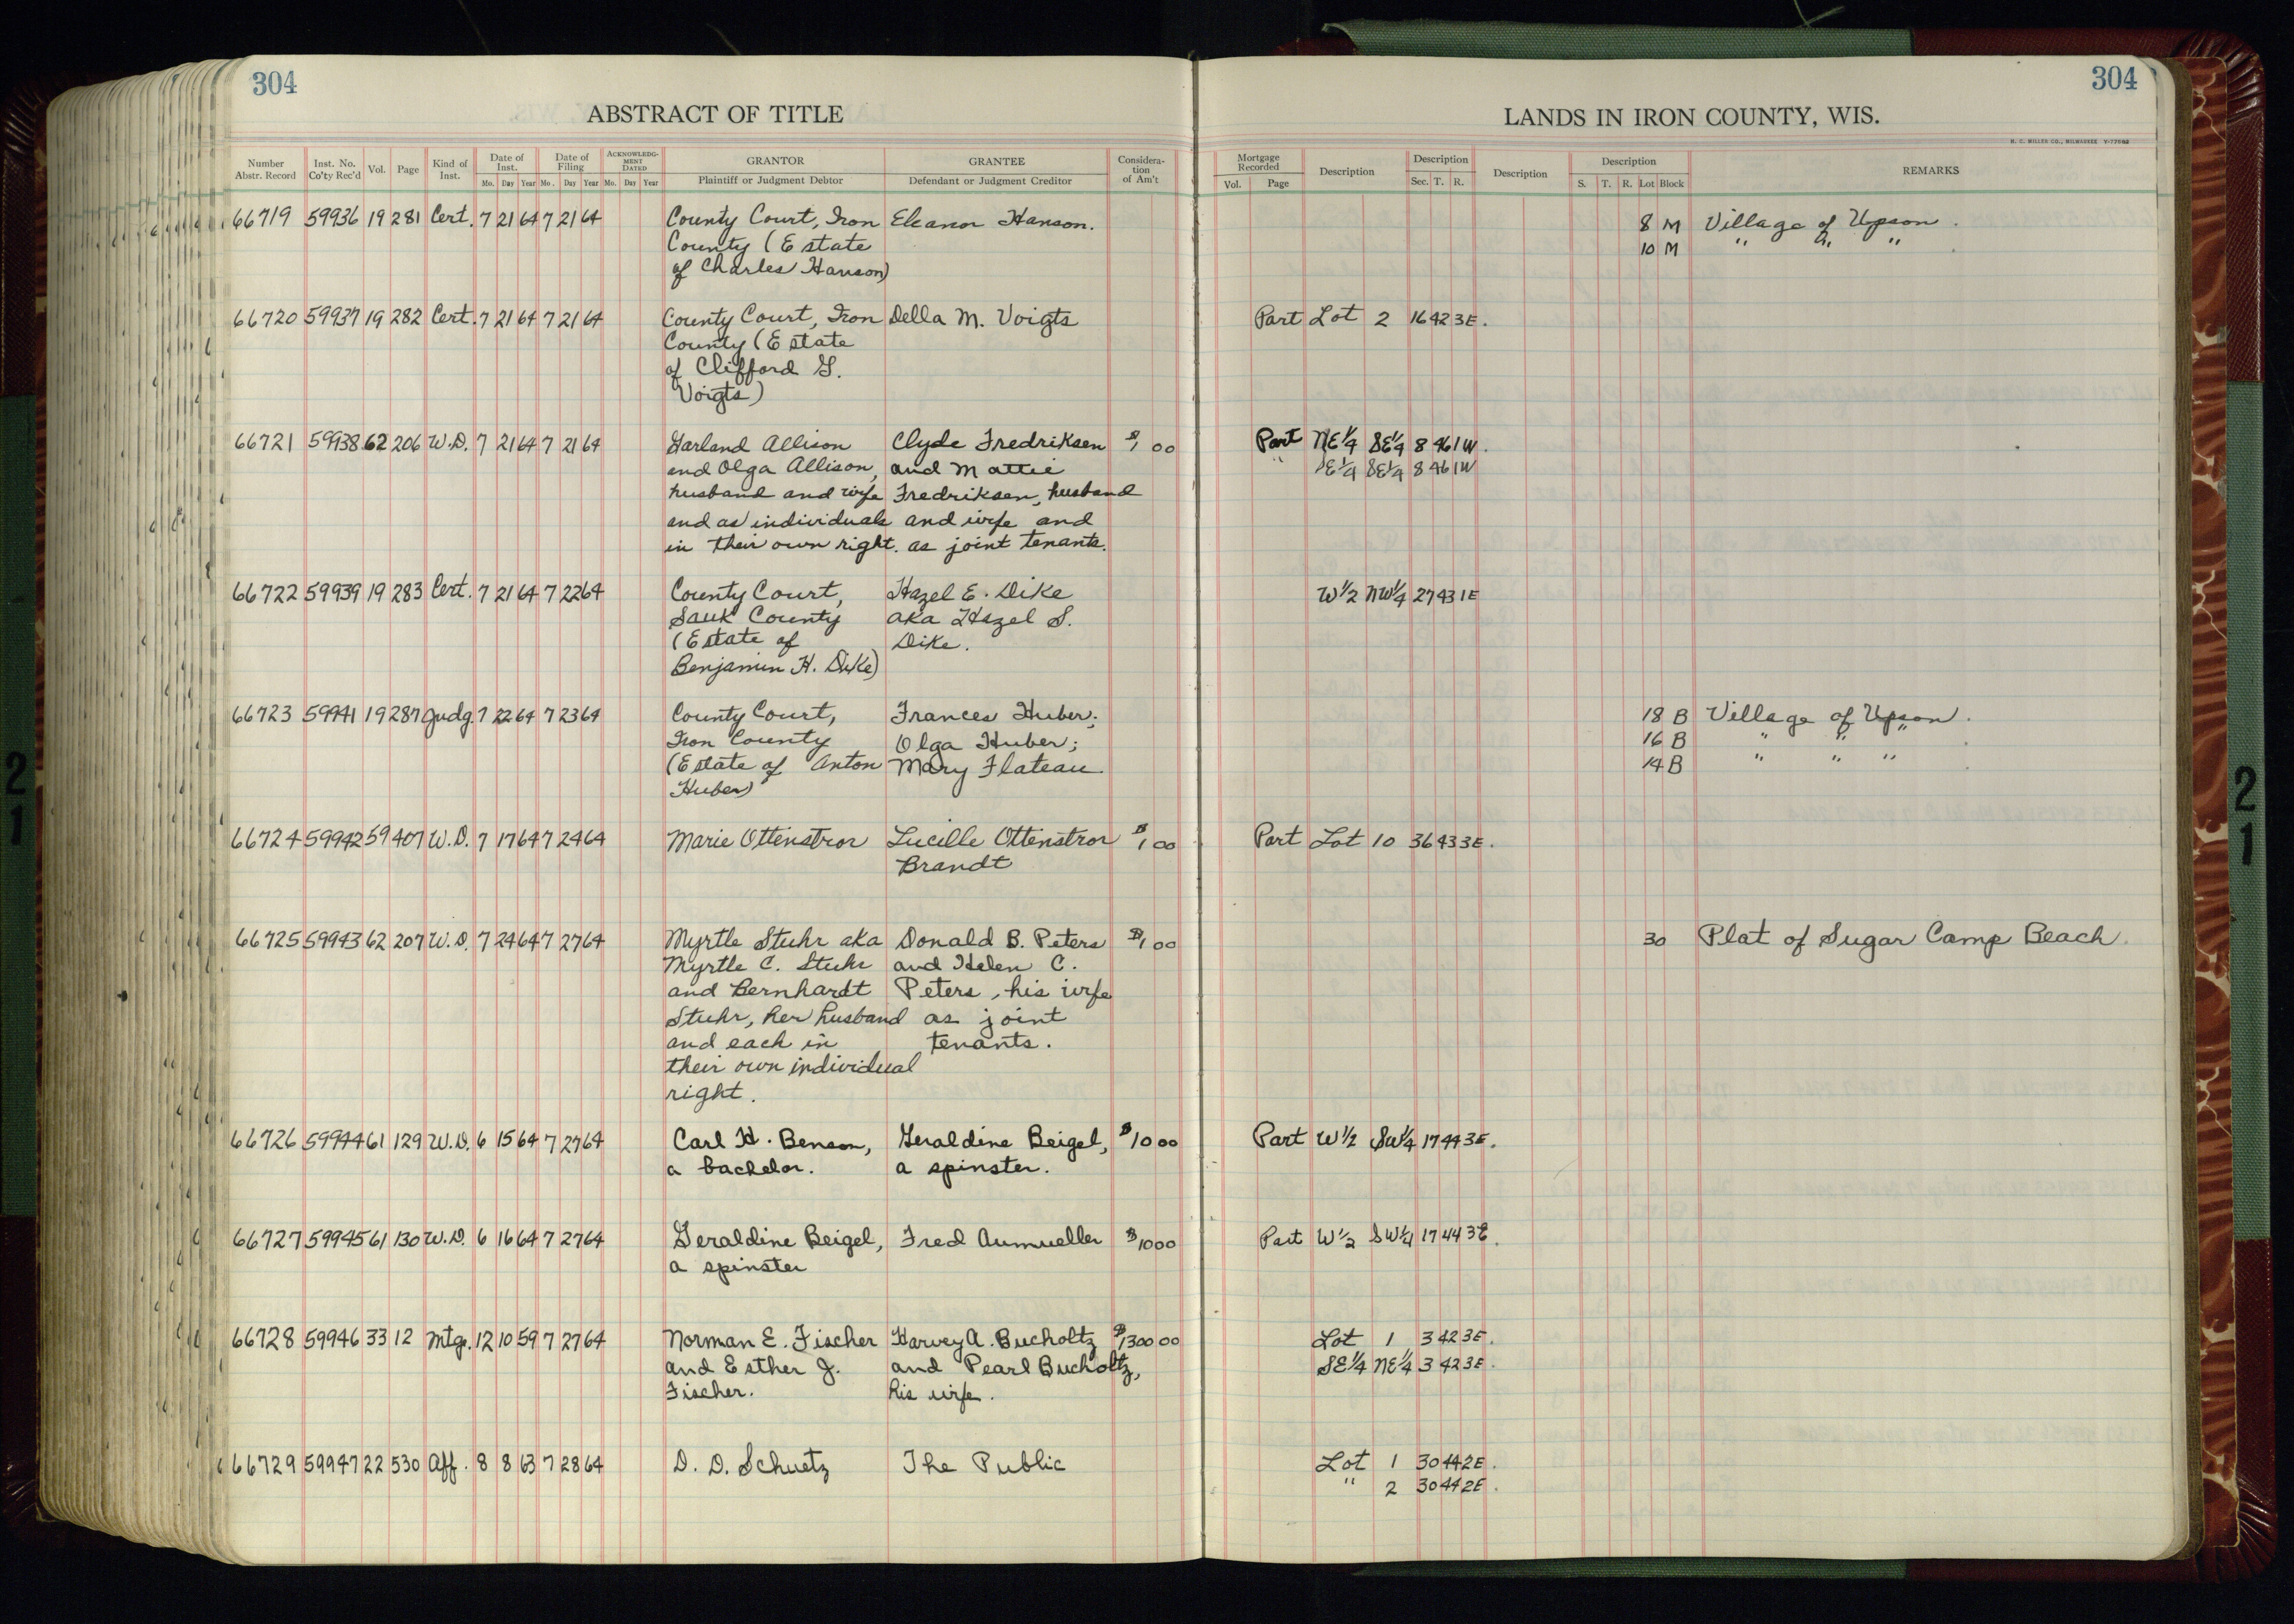 304
304
ABSTRACT OF TITLE
LANDS IN IRON COUNTY, WIS.
H. C. MILLER CO., MILWAUKEE
Number Abstr. Record Inst. No. Co'ty Rec'd Vol. Page Kind of Inst. Date of Inst. Mo. Day Year Date of Filing Mo. Day Year ACKNOWLEDGMENT DATED Mo. Day Year GRANTOR Plaintiff or Judgment Debtor GRANTEE Defendant or Judgment Creditor Consideration of Am't Mortgage Recorded Vol. Page Description Description Sec. T. R. Description Description S. T. R. Lot Block REMARKS
66719 59936 19 281 Cert. 7 21 64 7 21 64 County Court, Iron Eleanor Hanson. 8 M Village of Upson.
County (Estate 10 M " " "
of Charles Hanson)
66720 59937 19 282 Cert. 7 21 64 7 21 64 County Court, Iron Della M. Voigts Part Lot 2 16 42 3E.
County (Estate
of Clifford G.
Voigts)
66721 59938 62 206 W.D. 7 21 64 7 21 64 Garland Allison Clyde Fredriksen $1 00 Part NE 1/4 SE 1/4 8 46 1W.
and Olga Allison, and Mattie " SE 1/4 SE 1/4 8 46 1W
husband and wife Fredriksen, husband
and as individuals and wife and
in their own right. as joint tenants.
66722 59939 19 283 Cert. 7 21 64 7 22 64 County Court, Hazel E. Dike W 1/2 NW 1/4 27 43 1E
Sauk County aka Hazel S.
(Estate of Dike.
Benjamin H. Dike)
66723 59941 19 287 Judg. 7 22 64 7 23 64 County Court, Frances Huber; 18 B Village of Upson.
Iron County Olga Huber; 16 B " " "
(Estate of Anton Mary Flateau 14 B " " "
Huber)
66724 59942 59 407 W.D. 7 17 64 7 24 64 Marie Ottenstror Lucille Ottenstror $1 00 Part Lot 10 36 43 3E.
Brandt
66725 59943 62 207 W.D. 7 24 64 7 27 64 Myrtle Stuhr aka Donald B. Peters $1 00 30 Plat of Sugar Camp Beach.
Myrtle C. Stuhr and Helen C.
and Bernhardt Peters, his wife
Stuhr, her husband as joint
and each in tenants.
their own individual
right.
66726 59944 61 129 W.D. 6 15 64 7 27 64 Carl H. Benson, Geraldine Beigel, $10 00 Part W 1/2 SW 1/4 17 44 3E.
a bachelor. a spinster.
66727 59945 61 130 W.D. 6 16 64 7 27 64 Geraldine Beigel, Fred Aumueller $10 00 Part W 1/2 SW 1/4 17 44 3E.
a spinster
66728 59946 33 12 Mtge. 12 10 59 7 27 64 Norman E. Fischer Harvey A. Bucholtz $1300 00 Lot 1 3 42 3E.
and Esther J. and Pearl Bucholtz, SE 1/4 NE 1/4 3 42 3E.
Fischer. his wife.
66729 59947 22 530 Aff. 8 8 63 7 28 64 D. D. Schuetz The Public Lot 1 30 44 2E.
" 2 30 44 2E.
21
21